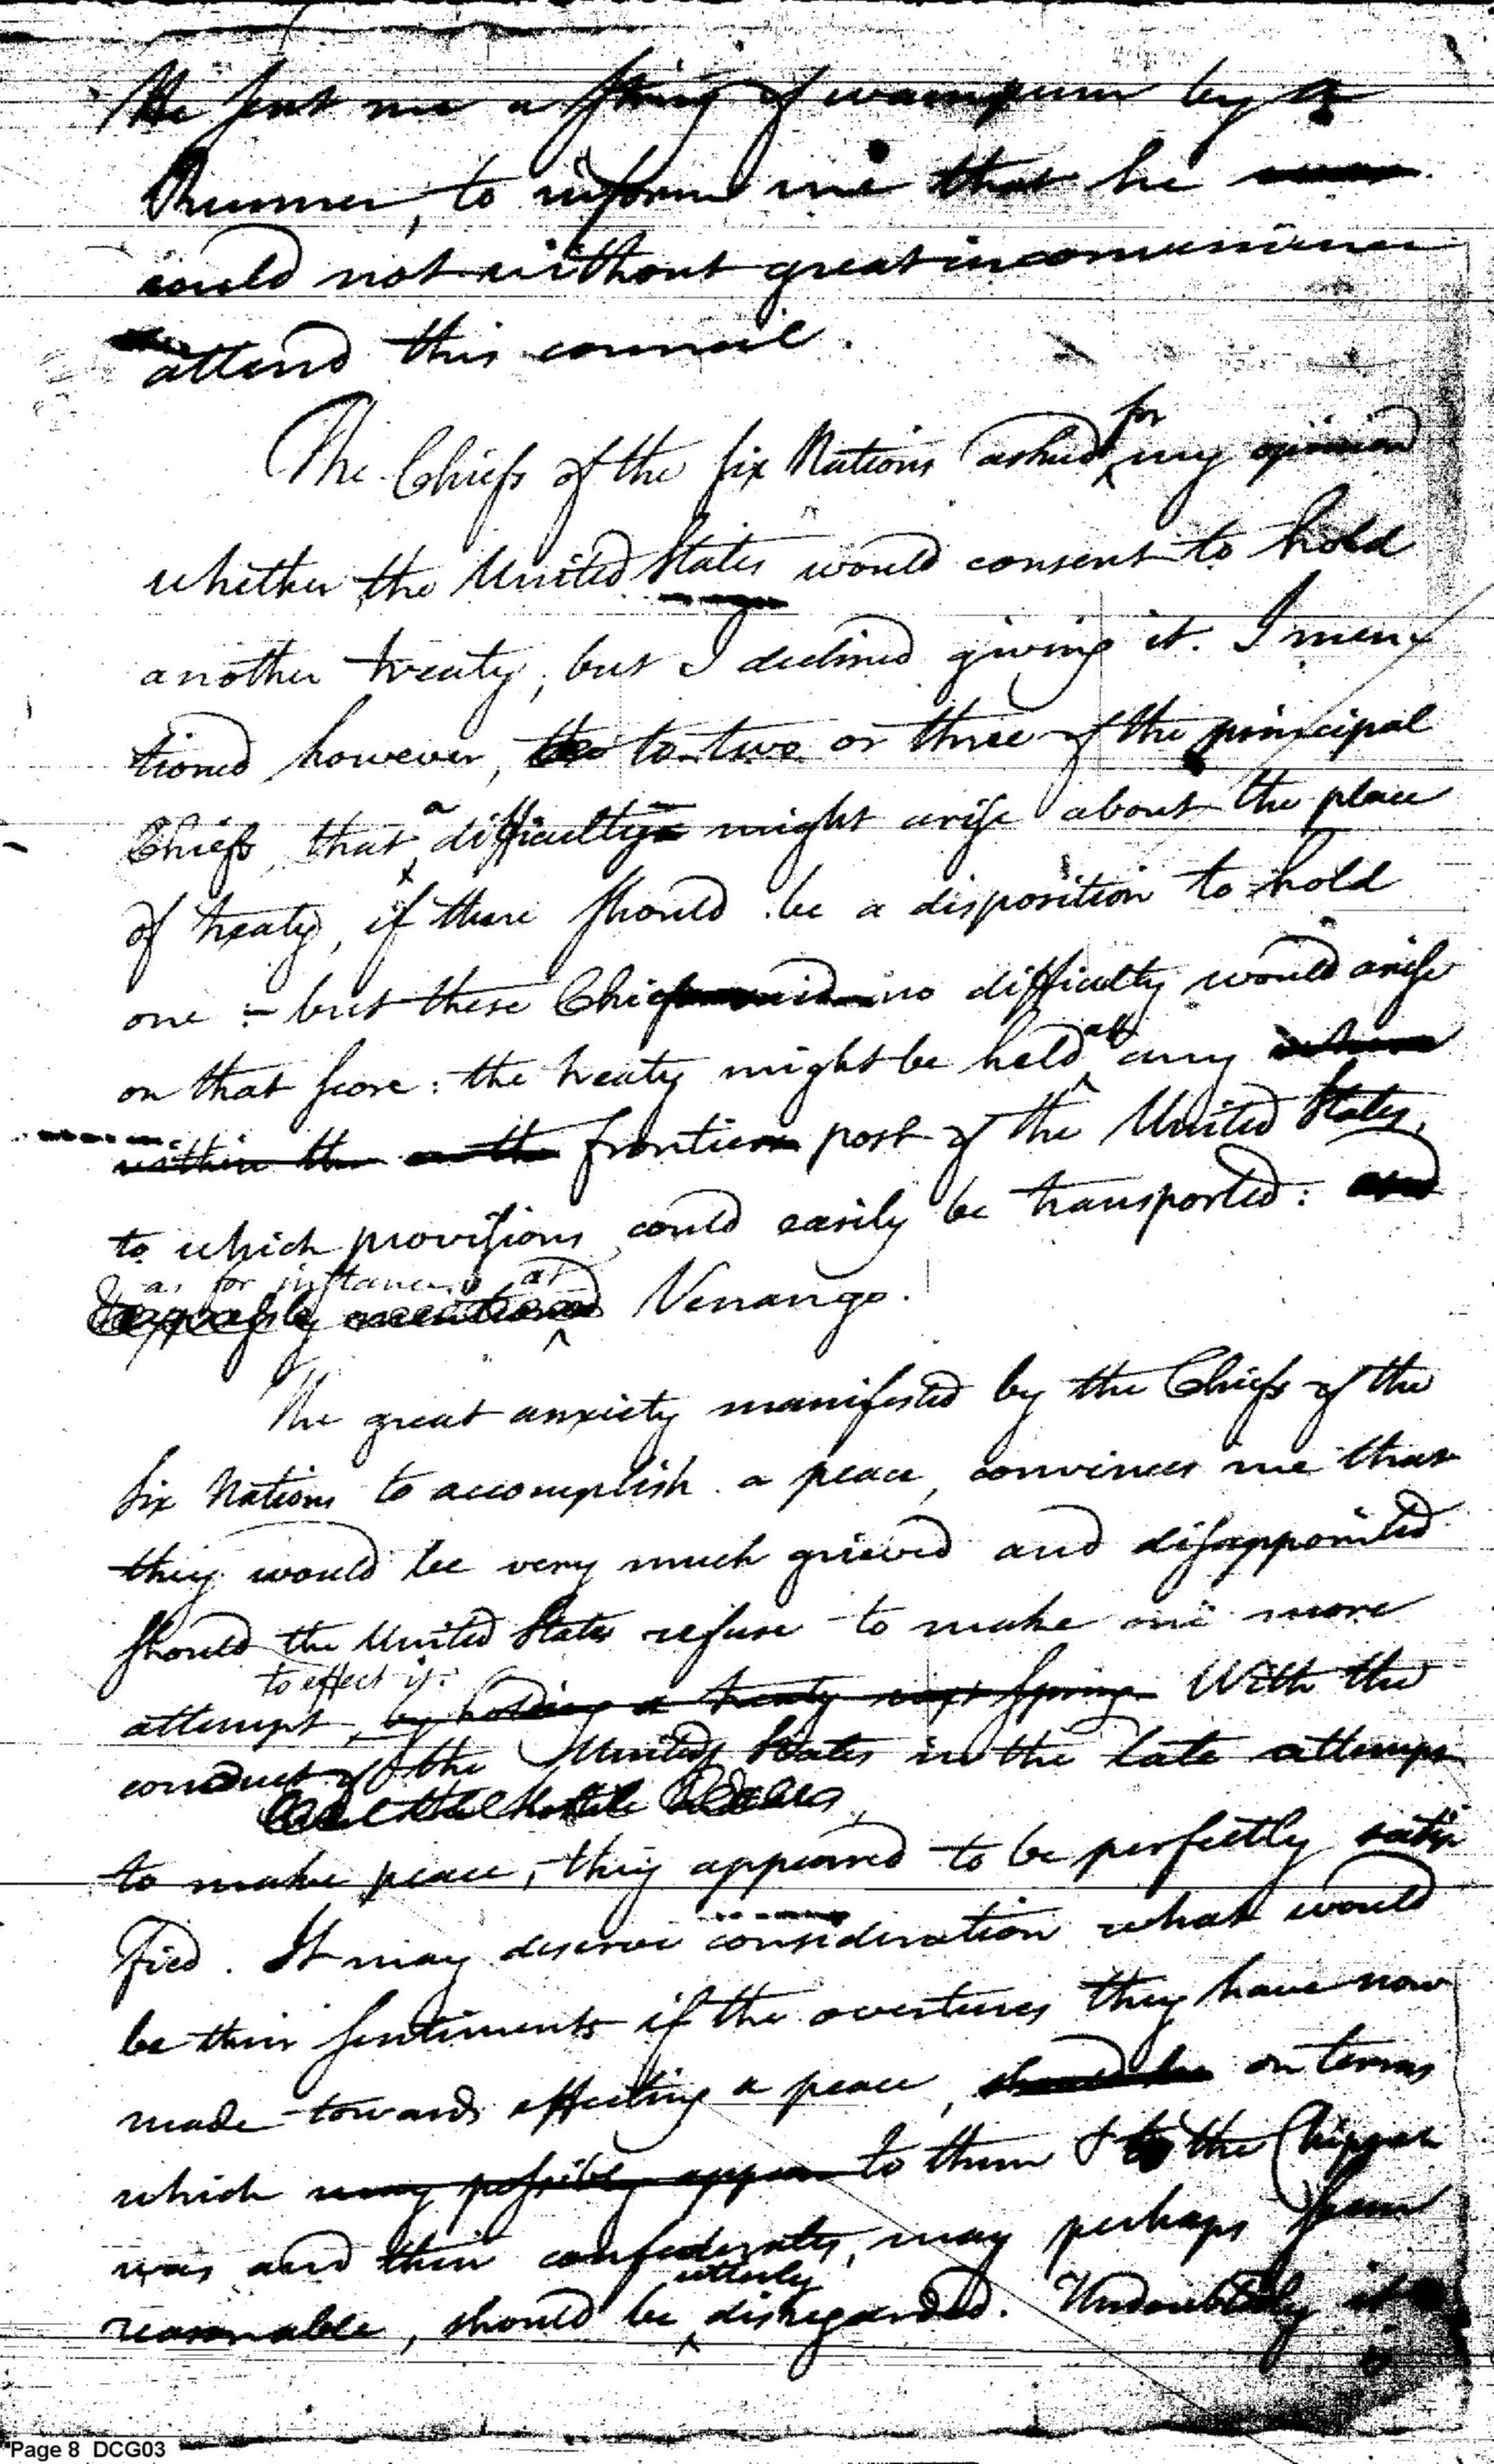 He sent me a string of wampum by a
Runner, to inform me that he was
could not without great inconvenience
attend this council.
for
The Chiefs of the six Nations asked ^ my opinion
whether the United States would consent to hold
another treaty, but I declined giving it. I men
tioned however, to two or three of the principal
a
Chiefs, that ^ difficulty might arise about the place
of treaty, if there should be a disposition to hold
one :- but these Chiefs said no difficulty would arise
at
on that score: the treaty might be held ^ any where
within the on the frontier post of the United States,
to which provisions could easily be transported: and
as for instance, at
expressly mentioned ^ Venango.
The great anxiety manifested by the Chiefs of the
six Nations to accomplish a peace, convinces me that
they would be very much grieved and disappointed
should the United States refuse to make one more
to effect it.
attempt, by holding a treaty next spring. With the
conduct of the United States in the late attempt
to make peace, they appeared to be perfectly satis
fied. It may deserve consideration what would
be their sentiments if the overtures they have now
made towards effecting a peace, should be on terms
which may possibly appear to them & to the Chippa
was and their confederates, may perhaps seem
utterly
reasonable, should be ^ disregarded. Undoubtedly it
Page 8 DCG03